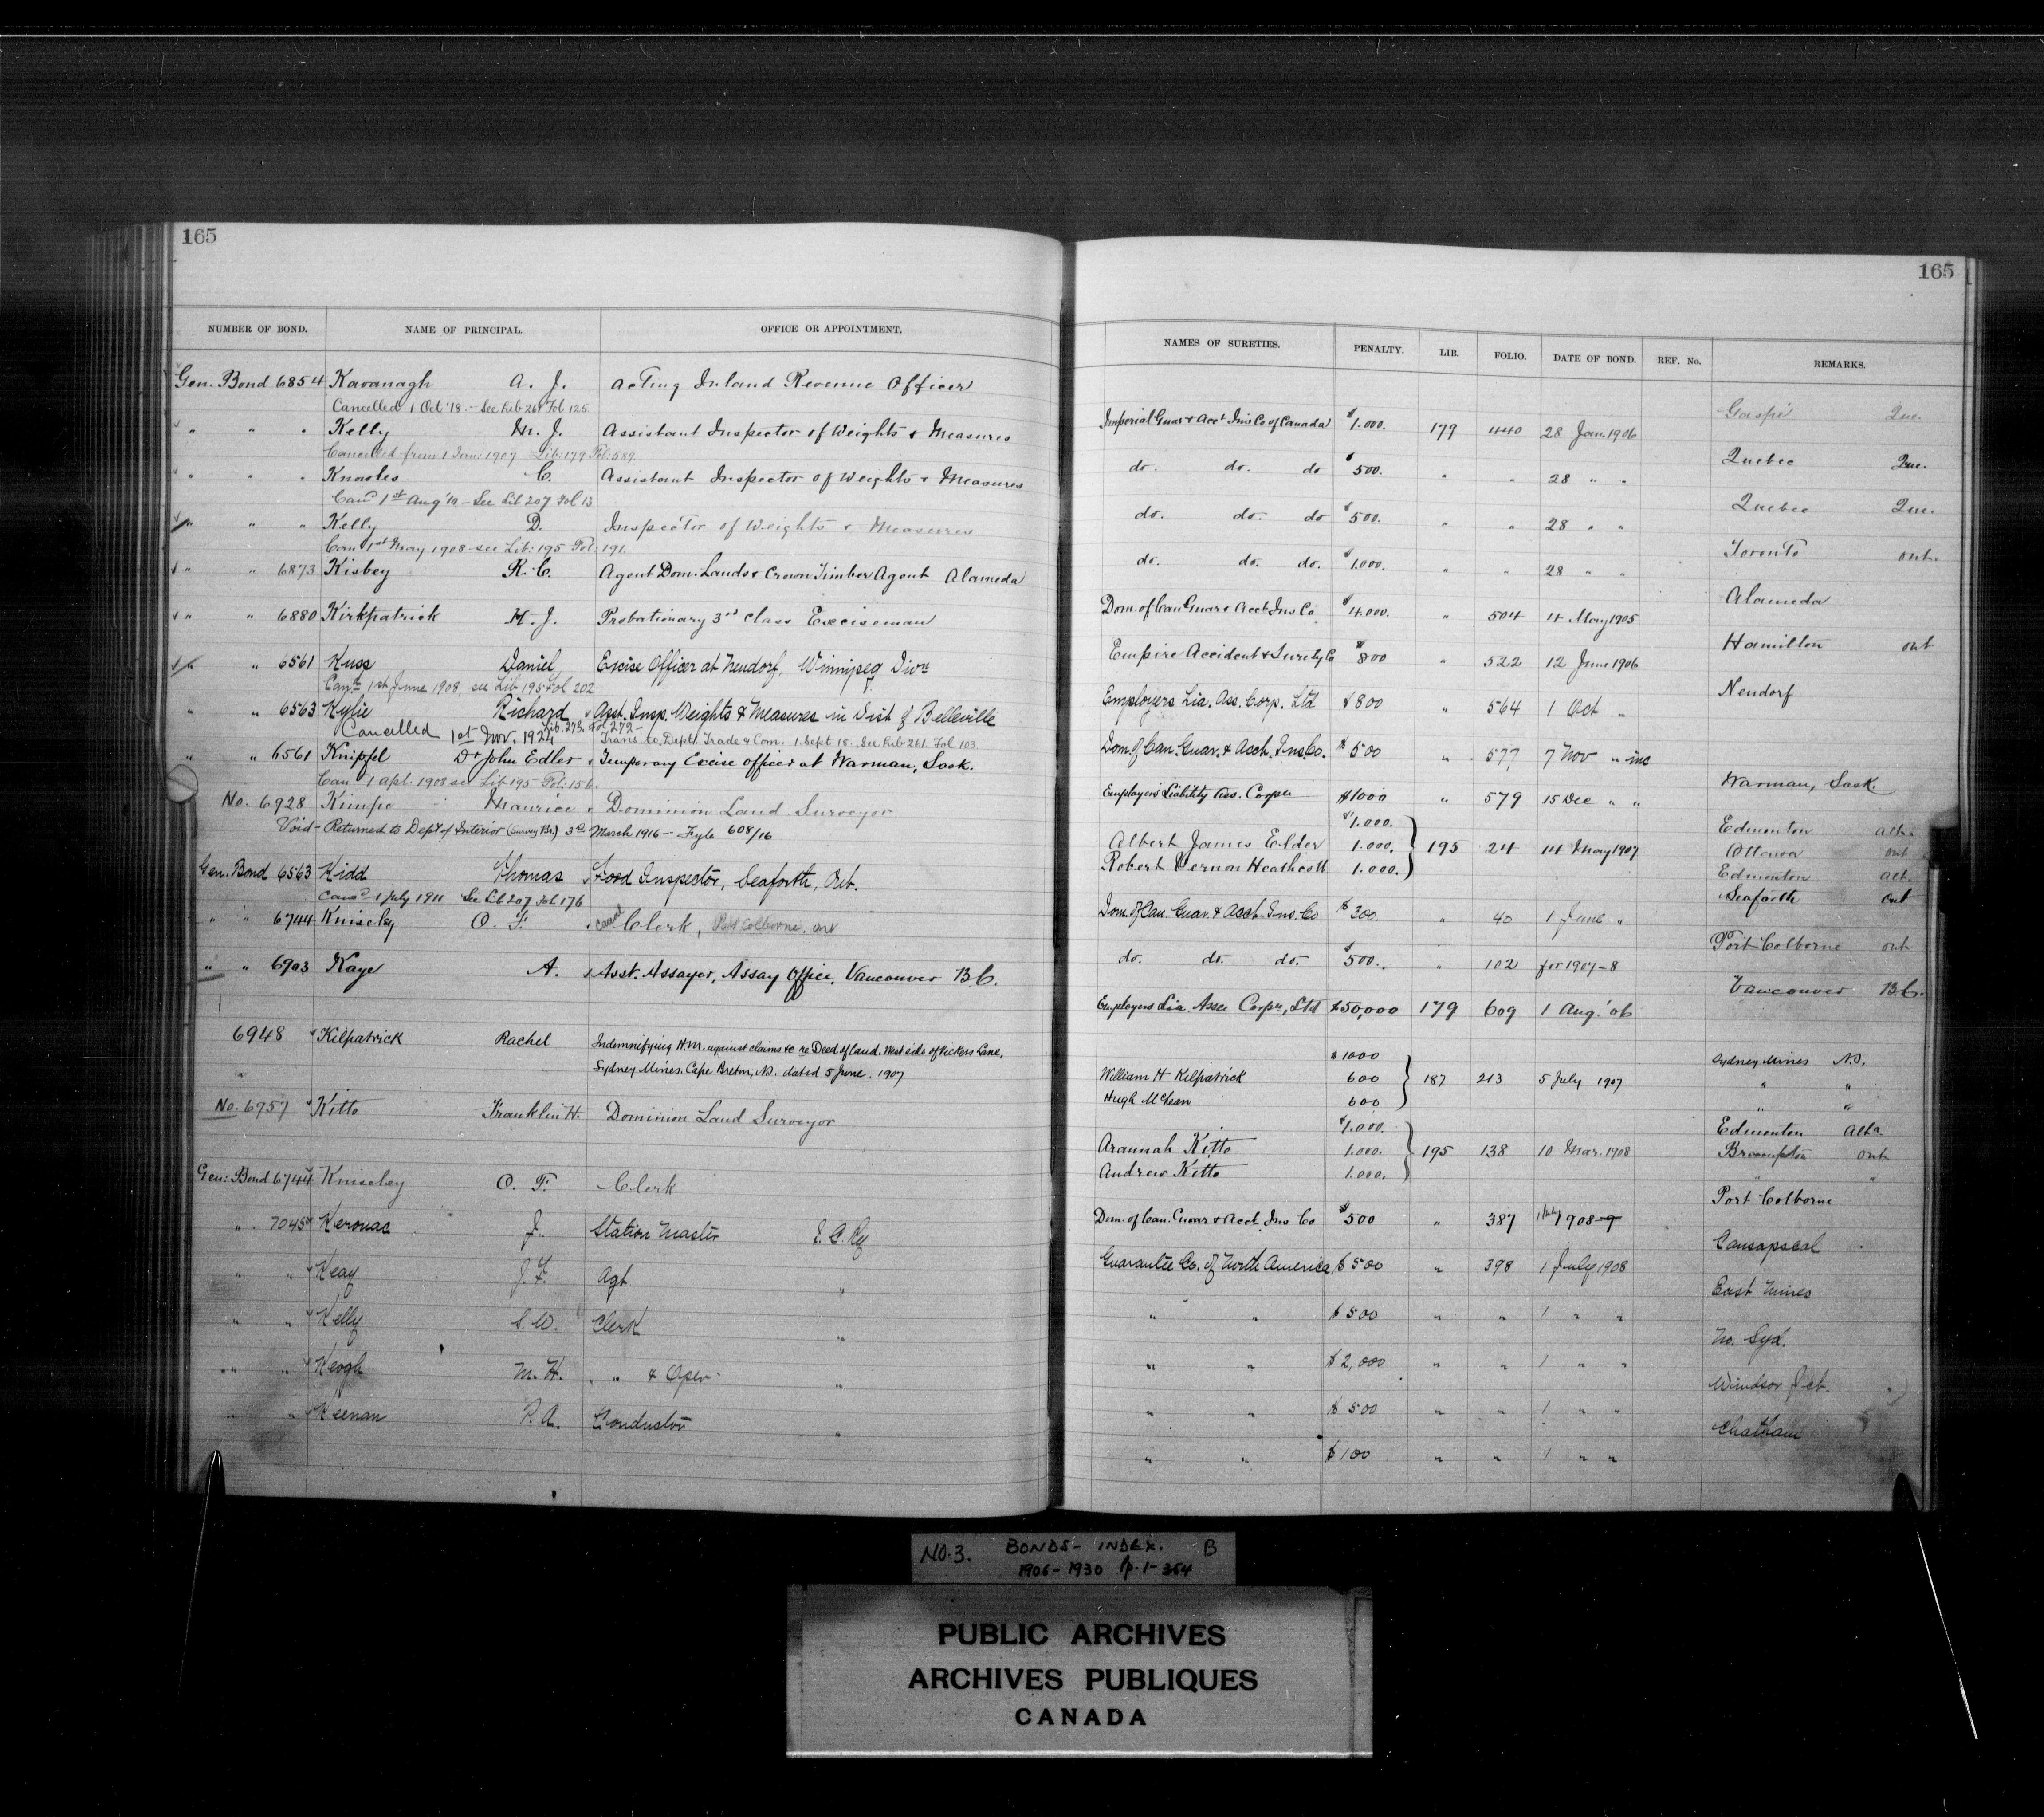 165
NUMBER OF BOND. NAME OF PRINCIPAL. OFFICE OR APPOINTMENT.
Gen. Bond 6854 Kavanagh A. J. Acting Inland Revenue Officer
Cancelled 1 Oct '18. - See Lib 261 Fol 125.
" " " Kelly M. J. Assistant Inspector of Weights & Measures
Cancelled from 1 Jan: 1907 Lib: 179 Fol: 589.
" " " Knowles C. Assistant Inspector of Weights & Measures
Canc'd 1st Aug '10 - See Lib 207 Fol 13
" " " Kelly D. Inspector of Weights & Measures
Can'd 1st May 1908 see Lib: 195 Fol: 191.
" " 6873 Kisbey R. C. Agent Dom. Lands & Crown Timber Agent Alameda
" " 6880 Kirkpatrick H. J. Probationary 3rd Class Exciseman
" " 6561 Kuss Daniel Excise Officer at Neudorf, Winnipeg Divn
Can'd 1st June 1908 see Lib 195 Fol 202
" " 6563 Kylie Richard Asst. Insp. Weights & Measures in Dist of Belleville
Cancelled 1st Nov. 1924 Lib. 273. Fol 272 - Trans. to Dept. Trade & Com. 1 Sept 18. See Lib 261. Fol 103.
" " 6561 Knipfel Dr John Edler Temporary Excise officer at Warman, Sask.
Can 1 Apl. 1908 see Lib 195 Fol: 156.
No. 6928 Kimpe Maurice Dominion Land Surveyor
Void - Returned to Dept of Interior (Survey Br.) 3rd March 1916 - Fyle 608/16
Gen. Bond 6563 Kidd Thomas Food Inspector, Seaforth, Ont.
Canc'd 1 July 1911 See Lib 207 Fol 176
" " 6744 Knisely O. F. Canc'd Clerk, Port Colborne, Ont
" " 6903 Kaye A. Asst. Assayer, Assay Office, Vancouver B.C.
6948 Kilpatrick Rachel Indemnifying H.M. against claims &c re Deed of Land. West side of Pickers Lane,
Sydney Mines, Cape Breton, N.S. dated 5 June. 1907
No. 6957 Kitto Franklin H. Dominion Land Surveyor
Gen: Bond 6744 Kniseley O. F. Clerk
" 7045 Kerouac J. Station Master I. C. Ry
" " Keay J. F. Agt "
" " Kelly S. W. Clerk "
" " Keogh M. H. " & Oper "
" " Keenan P. A. Conductor "
165
NAMES OF SURETIES. PENALTY. LIB. FOLIO. DATE OF BOND. REF. No. REMARKS.
Imperial Guar & Acct Ins Co of Canada $1.000. 179 440 28 Jan. 1906 Gaspé Que.
do. do. do $500. " " 28 " " Quebec Que.
do. do. do $500. " " 28 " " Quebec Que.
do. do. do. $1.000. " " 28 " " Toronto Ont.
Dom. of Can Guar & Acct Ins Co $4.000. " 504 4 May 1905 Alameda
Empire Accident & Surety Co $800 " 522 12 June 1906 Hamilton Ont
Employers Lia. Ass. Corp. Ltd $800 " 564 1 Oct " Neudorf
Dom. of Can. Guar. & Acct. Ins. Co. $500 " 577 7 Nov " inc
Employers Liability Ass. Corpn $1000 " 579 15 Dec " " Warman, Sask.
$1.000. Edmonton Alta.
Albert James Elder 1.000. 195 24 14 May 1907 Ottawa Ont
Robert Vernon Heathcott 1.000. Edmonton Alt.
Dom. of Can. Guar. & Acct. Ins. Co $300. " 40 1 June " Seaforth Ont
do. do. do. $500. " 102 for 1907-8 Port Colborne Ont
Employers Lia. Assce Corpn, Ltd $50,000 179 609 1 Aug. '06 Vancouver B.C.
$1000 Sydney Mines N.S.
William H Kilpatrick 600 187 213 5 July 1907 " "
Hugh McLean 600 " "
$1.000. Edmonton Alta
Araunah Kitto 1.000. 195 138 10 Mar. 1908 Brampton Ont
Andrew Kitto 1.000. " "
Dom. of Can. Guar & Acct. Ins Co $500 " 387 1 July 1908-9 Port Colborne
Guarantee Co. of North America $500 " 398 1 July 1908 Causapscal
" " $500 " " 1 " " East Mines
" " $2,000 " " 1 " " No. Syd.
" " $500 " " 1 " " Windsor Jct.
" " $100 " " 1 " " Chatham
NO. 3. BONDS - INDEX. B
1906 - 1930 p. 1 - 364
PUBLIC ARCHIVES
ARCHIVES PUBLIQUES
CANADA